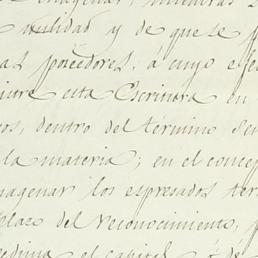 enagenar, mientras
nulidad y de que se p
as poseedores, á cuyo efe
istre esta Escritura en
os, dentro del término Señ
la materia; en el concep
nagenar los espresados ter
plazo del reconocimiento, p
edima el capital, ó de